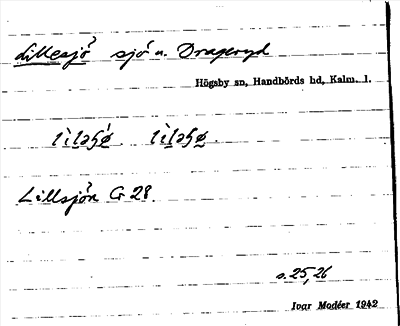 Lillesjö sjö n. Drageryd
Högsby sn, Handbörds hd, Kalm. l.
Lillsjön G 28.
s. 25, 26
Ivar Modéer 1942